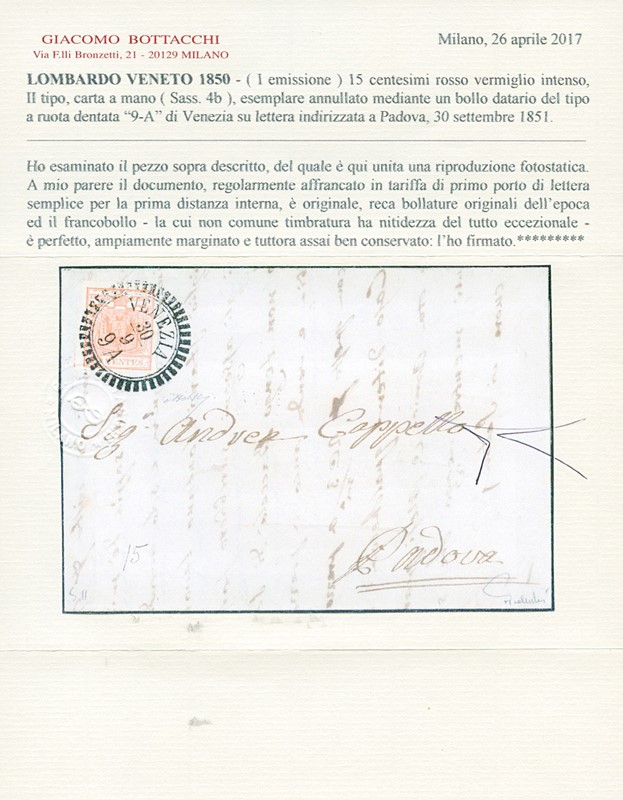 GIACOMO BOTTACCHI
Via F.lli Bronzetti, 21 - 20129 MILANO
Milano, 26 aprile 2017
LOMBARDO VENETO 1850 - ( I emissione ) 15 centesimi rosso vermiglio intenso,
II tipo, carta a mano ( Sass. 4b ), esemplare annullato mediante un bollo datario del tipo
a ruota dentata “9-A” di Venezia su lettera indirizzata a Padova, 30 settembre 1851.
Ho esaminato il pezzo sopra descritto, del quale è qui unita una riproduzione fotostatica.
A mio parere il documento, regolarmente affrancato in tariffa di primo porto di lettera
semplice per la prima distanza interna, è originale, reca bollature originali dell’epoca
ed il francobollo - la cui non comune timbratura ha nitidezza del tutto eccezionale -
è perfetto, ampiamente marginato e tuttora assai ben conservato: l’ho firmato.*********
VENEZIA
30
9
9A
CENTES
Sigr Andrea Cappello
Padova
15